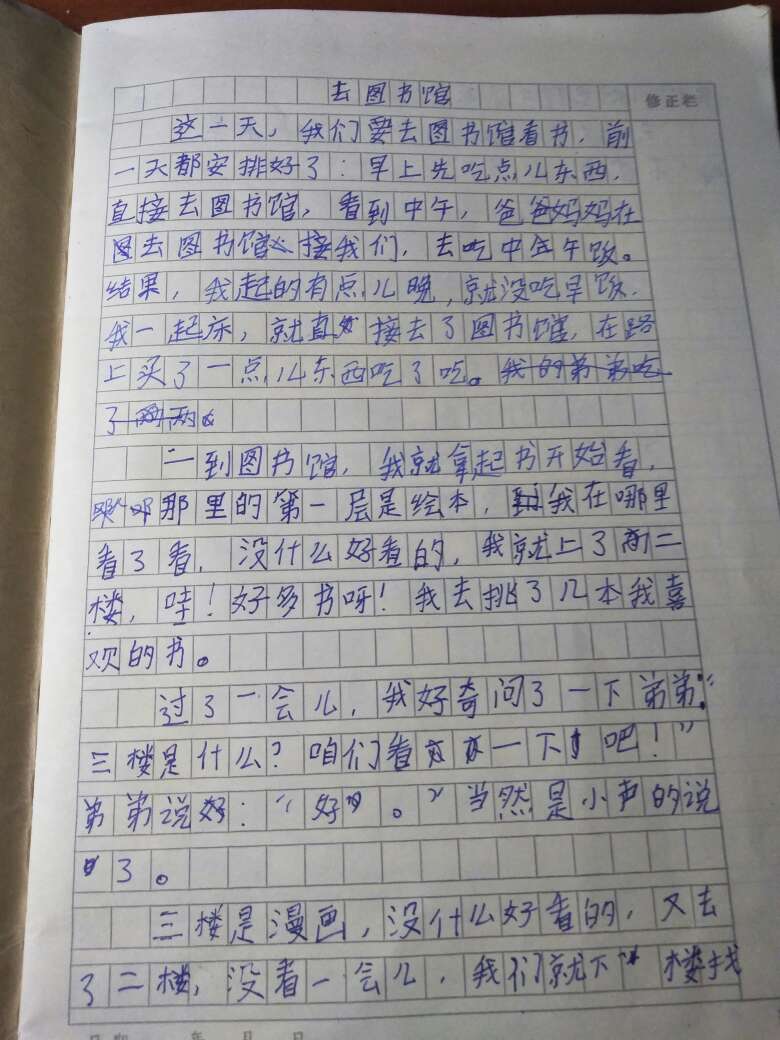 去图书馆
修正栏
这一天，我们要去图书馆看书，前
一天都安排好了：早上先吃点儿东西，
直接去图书馆，看到中午，爸爸妈妈在
去图书馆接我们，去吃中午饭。
结果，我起的有点儿晚，就没吃早饭，
我一起床，就直接去了图书馆，在路
上买了一点儿东西吃了吃。我的弟弟吃
了两两。
一到图书馆，我就拿起书开始看，
那里的第一层是绘本，我在哪里
看了看，没什么好看的，我就上了二
楼，哇！好多书呀！我去挑了几本我喜
欢的书。
过了一会儿，我好奇问了一下弟弟：“
三楼是什么？咱们看一下吧！”
弟弟说：“好。”当然是小声的说
了。
三楼是漫画，没什么好看的，又去
了二楼，没看一会儿，我们就下楼找
年 月 日